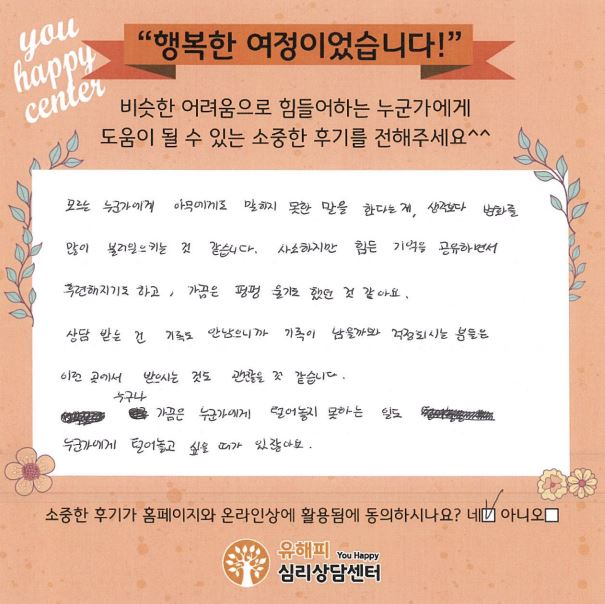 you
happy
center
“행복한 여정이었습니다!”
비슷한 어려움으로 힘들어하는 누군가에게
도움이 될 수 있는 소중한 후기를 전해주세요^^
모르는 누군가에게 아무에게도 말하지 못한 말을 한다는게, 생각보다 변화를
많이 불러일으키는 것 같습니다. 사소하지만 힘든 기억을 공유하면서
후련해지기도 하고, 가끔은 펑펑 울기도 했던 것 같아요.
상담 받는 건 기록도 안남으니까 기록이 남을까봐 걱정되시는 분들은
이런 곳에서 받으시는 것도 괜찮을 것 같습니다.
누구나
가끔은 누군가에게 털어놓지 못하는 일도
누군가에게 털어놓고 싶을 때가 있잖아요.
소중한 후기가 홈페이지와 온라인상에 활용됨에 동의하시나요? 네 아니오
유해피 You Happy
심리상담센터